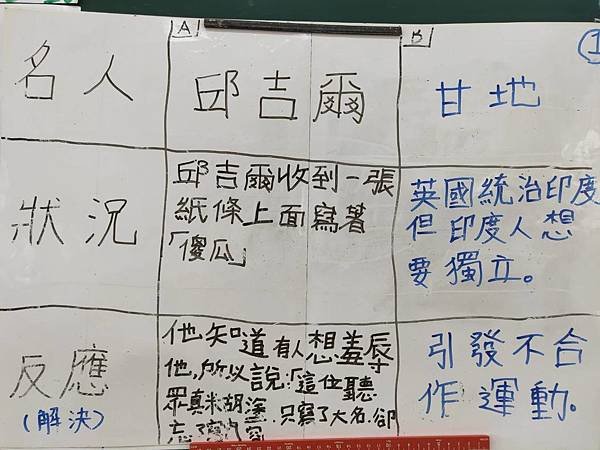 A
B
1
名人
邱吉爾
甘地
狀況
邱吉爾收到一張
紙條上面寫著
「傻瓜」
英國統治印度
但印度人想
要獨立。
反應
(解決)
他知道有人想羞辱
他,所以說:「這位聽
眾真米胡塗.只寫了大名.卻
忘了寫內容
引發不合
作運動。